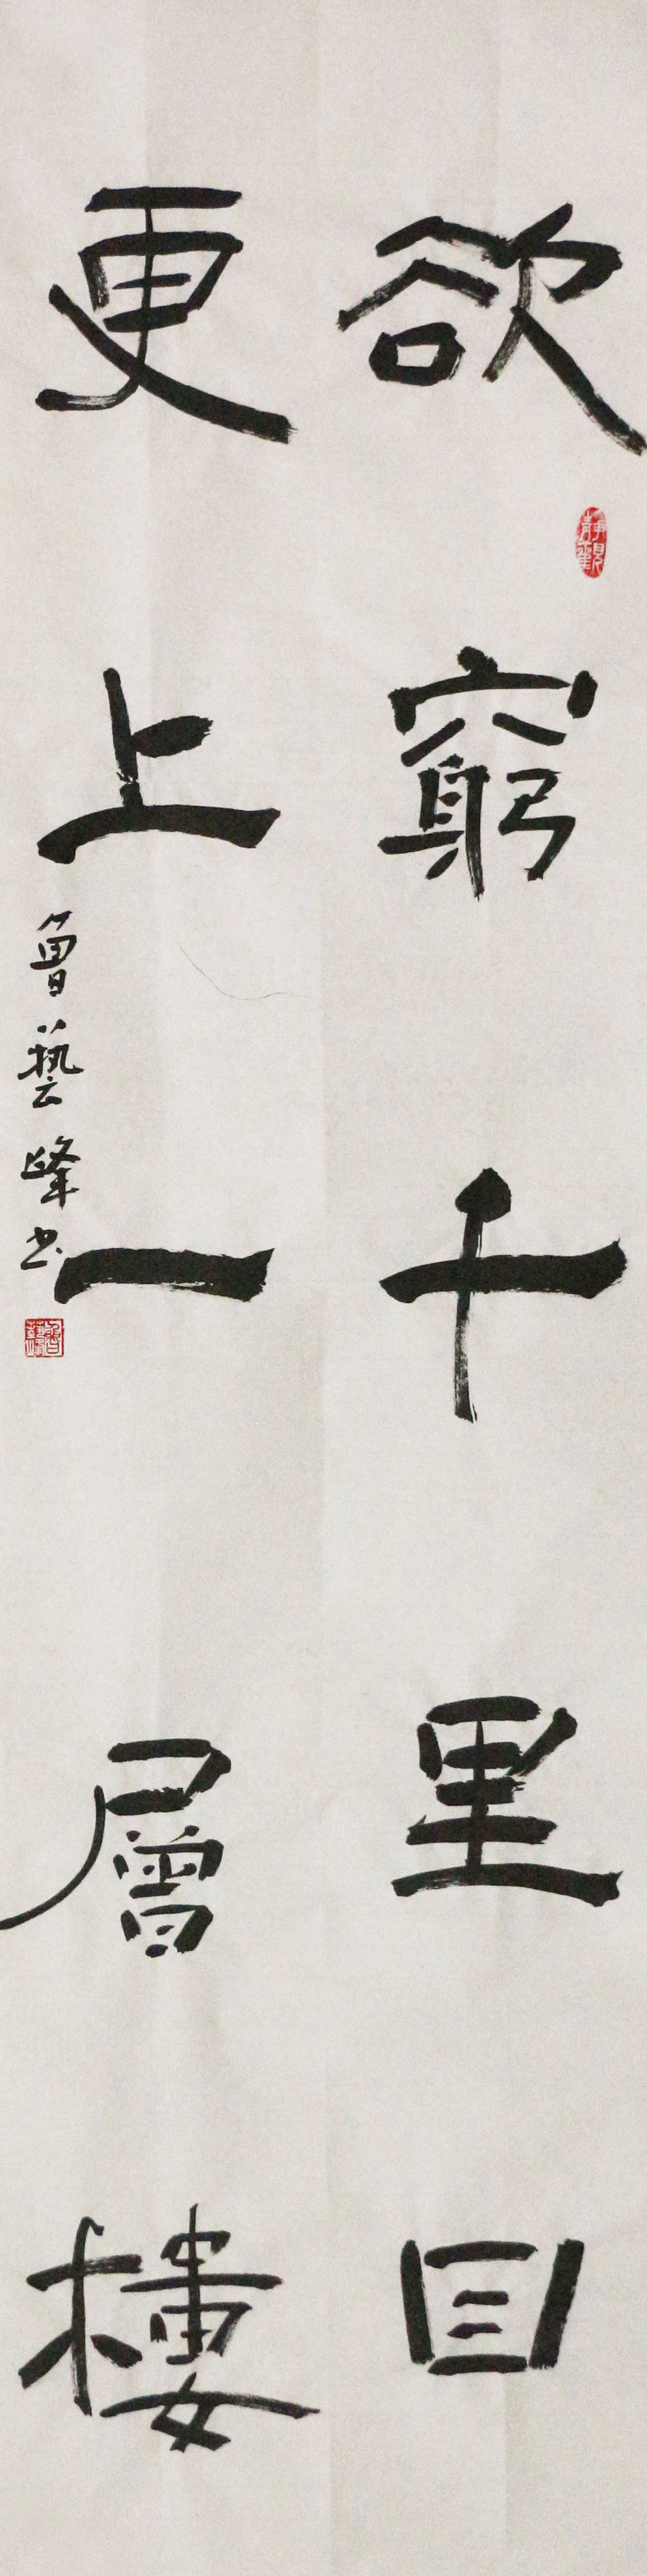 欲窮千里目
更上一層樓
魯藝峰书